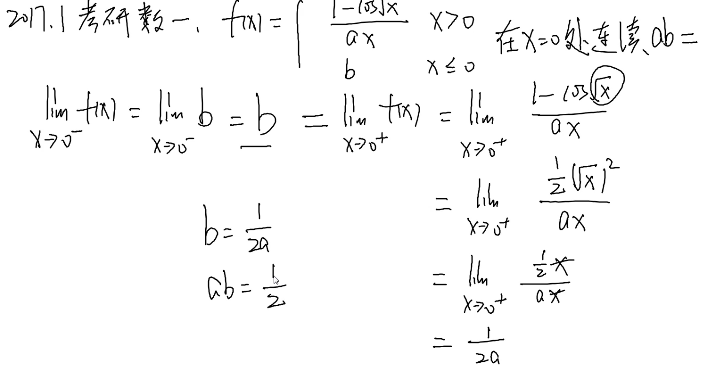 2017.1 考研数一. f(x) = { (1-cos√x)/(ax) x>0 在x=0处连续, ab=
b x≤0
lim x→0⁻ f(x) = lim x→0⁻ b = b = lim x→0⁺ f(x) = lim x→0⁺ (1-cos√x)/(ax)
= lim x→0⁺ (½(√x)²)/(ax)
b = 1/(2a)
ab = 1/2
= lim x→0⁺ (½x)/(ax)
= 1/(2a)